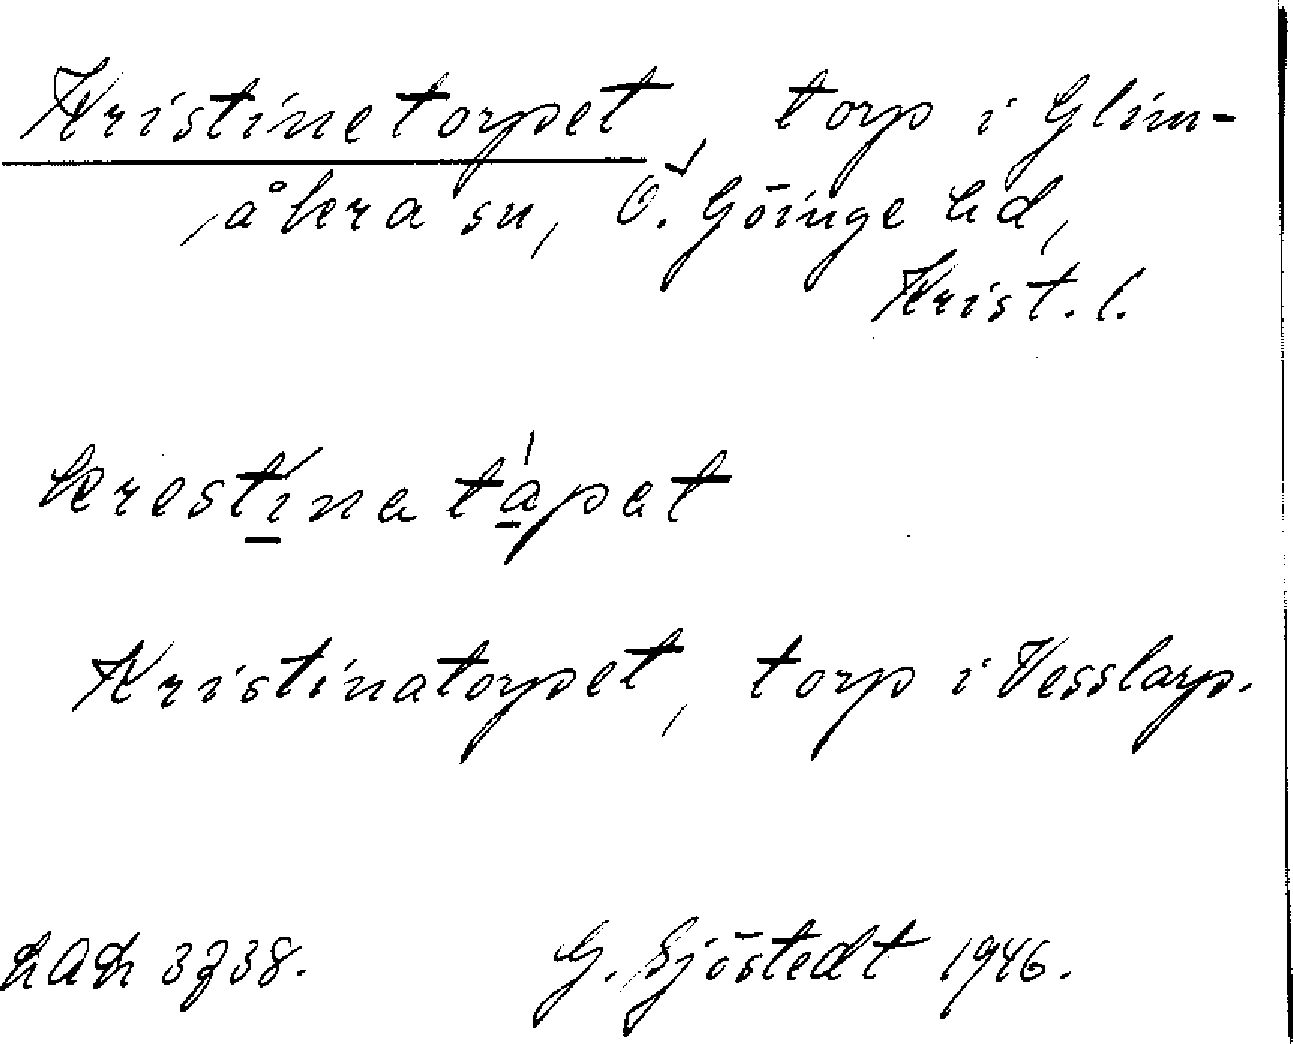 Kristinetorpet, torp i Glim-
åkra sn, Ö. Göinge hd,
Krist. l.
krestina tápet
Kristinatorpet, torp i Vesslarp.
LAL 3738. G. Sjöstedt 1946.